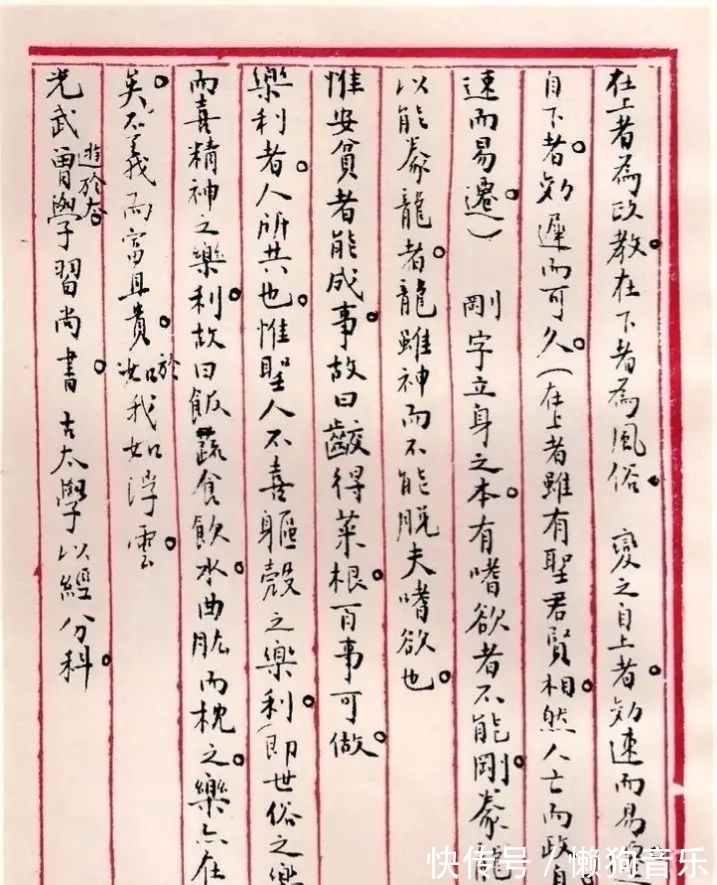 在上者為政教。在下者為風俗。 變之自上者。効速而易
自下者。効遲而可久。(在上者雖有聖君賢相。然人亡而政
速而易遷) 剛字立身之本。有嗜欲者不能剛。豢龍
以能豢龍者。龍雖神而不能脱夫嗜欲也。
惟安貧者能成事。故曰齩得菜根。百事可做。
樂利者。人所共也。惟聖人不喜軀殼之樂利。(即世俗之樂
而喜精神之樂利。故曰飯蔬食飲水。曲肱而枕之。樂亦在
矣。不義而富且貴。於我如浮雲。
光武曾遊於太學習尚書。古太學以經分科。
快传号 / 懒狗音乐